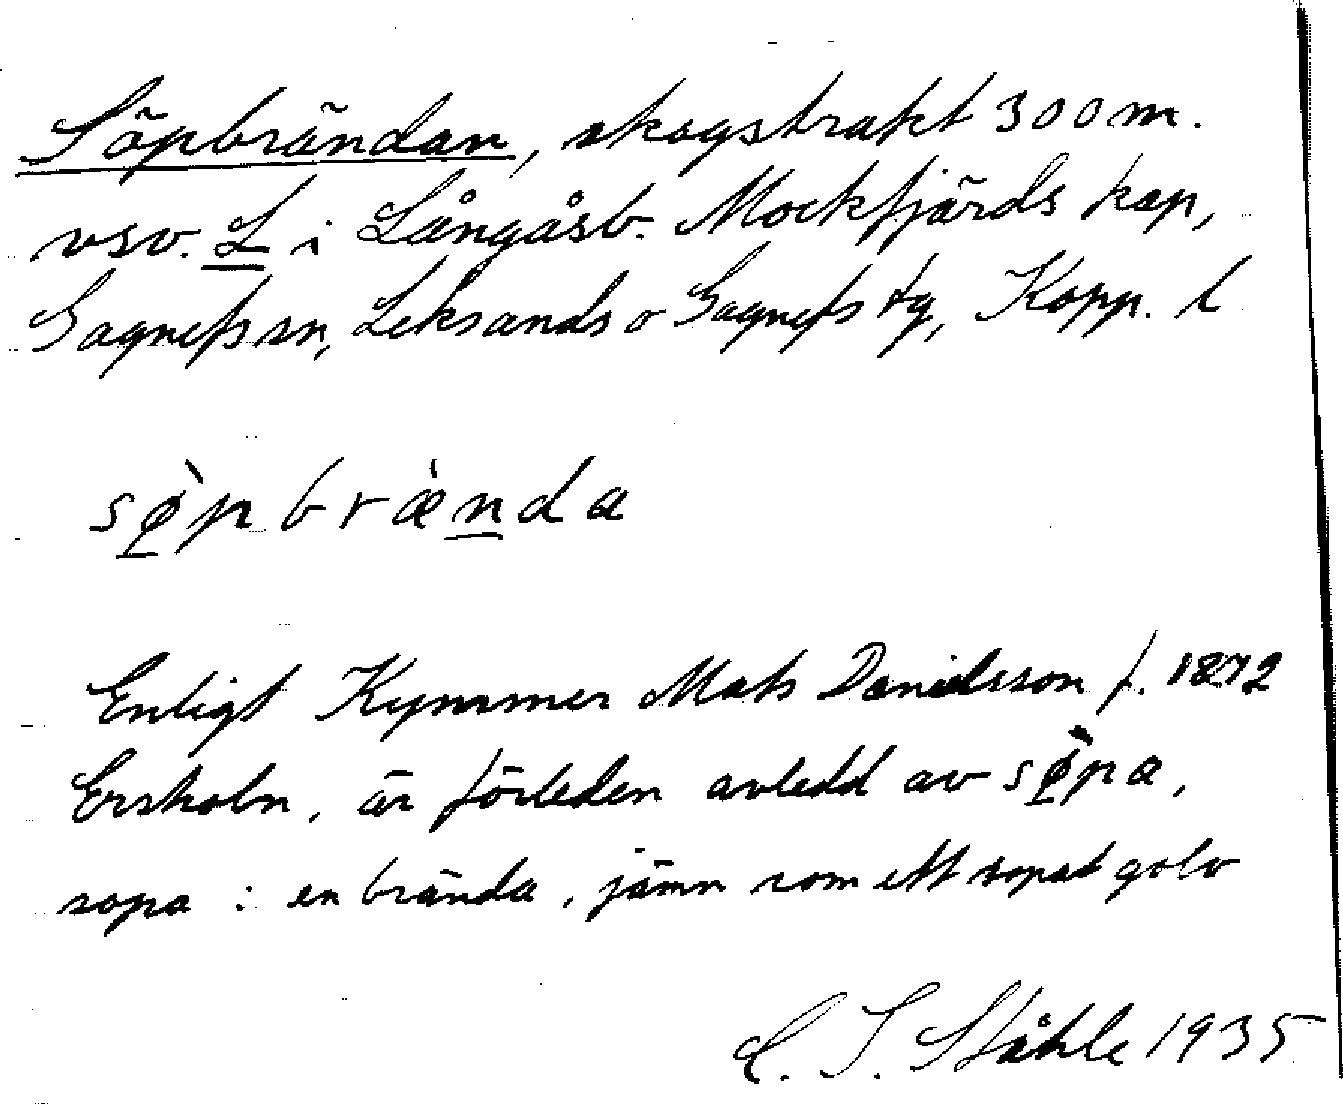 Söpbrändan, skogstrakt 300 m.
vsv. L i Långåsb. Mockfjärds kap,
Gagnefs sn, Leksands o Gagnefs tg, Kopp. l
sø̀pbræ̀nda
Enligt Kymmer Mats Danielsson f. 1872
Ersholn, är förleden avledd av sø̀pa,
sopa : en brända, jämn som ett sopat golv
C. I. Ståhle 1935